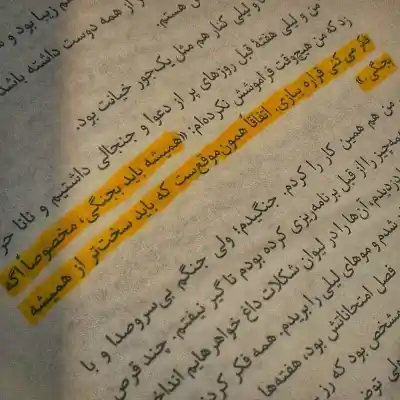 زیبا بود و
از همه دوست داشته باشد
هستم.
و لیلی کنار هم مثل یک‌جور خیانت بود.
من و لیلی هفته قبل روزهای پر از دعوا و جنجالی داشتیم و نانا
زد که من هیچ‌وقت فراموشش نکرده‌ام: «همیشه باید بجنگی؛ مخصوصاً اگه
فکر می‌کنی قراره ببازی. اتفاقاً همون موقع‌ست که باید سخت‌تر از همیشه
بجنگی.»
من هم همین کار را کردم. جنگیدم؛ ولی جنگم بی‌سروصدا و با
همه‌چیز را از قبل برنامه‌ریزی کرده بودم تا گیر نیفتم. چند قرص
دزدیدم، آن‌ها را در لیوان شکلات داغ خواهرهایم
شد و موهای لیلی را بریدم. همه فکر
فصل امتحاناتش بود، هفته‌ها
مشخص بود که